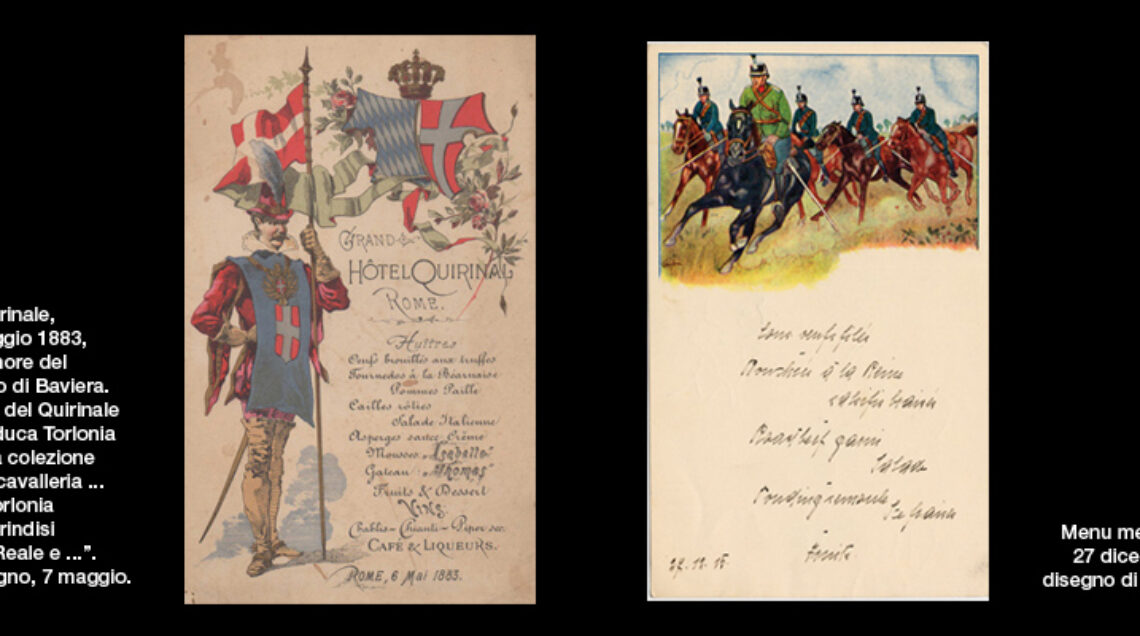 rinale,
ggio 1883,
nore del
o di Baviera.
del Quirinale
duca Torlonia
a colezione
cavalleria ...
orlonia
rindisi
Reale e ...”.
gno, 7 maggio.
GRAND
HÔTEL QUIRINAL
ROME.
Huîtres
Oeufs brouillés aux truffes
Tournedos à la Béarnaise
Pommes Paille
Cailles rôties
Salade Italienne
Asperges sauce Crème
Mousses „Isabella“
Gateau „Thomas“
Fruits & Dessert
VINS:
Chablis – Chianti – Piper sec.
CAFÉ & LIQUEURS.
ROME, 6 Mai 1883.
à la Reine
garni
Salade
Menu me
27 dice
disegno di